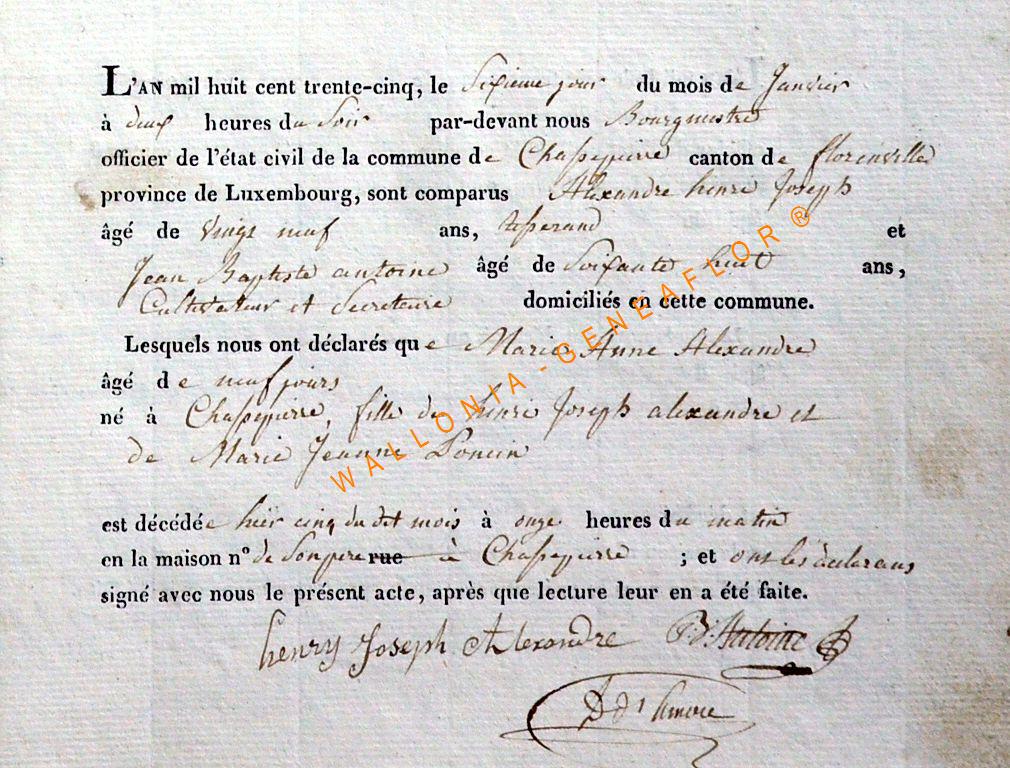 L'AN mil huit cent trente-cinq, le Sixieme jour du mois de Janvier
à deux heures du Soir par-devant nous Bourgmestre
officier de l'état civil de la commune de Chassepierre canton de florenville
province de Luxembourg, sont comparus Alexandre henri Joseph
âgé de Vingt neuf ans, tisserand et
Jean Baptiste antoine âgé de Soixante huit ans,
Cultivateur et Secretaire domiciliés en cette commune.
Lesquels nous ont déclarés que Marie Anne Alexandre
âgé de neuf jours
né à Chassepierre, fille de henri Joseph alexandre et
de Marie Jeanne Poncin
est décédée hier cinq du dit mois à onze heures du matin
en la maison n° de Son pere rue à Chassepierre ; et ont les declarans
signé avec nous le présent acte, après que lecture leur en a été faite.
henry Joseph Alexandre Antoine
WALLONIA-GENEAFLOR®